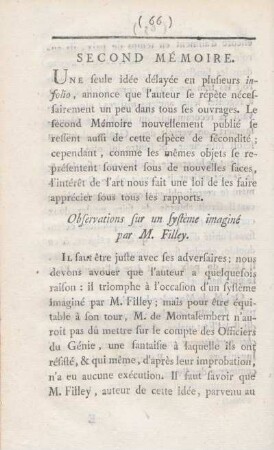 ( 66 )
SECOND MÉMOIRE.
UNE seule idée délayée en plusieurs in-
folio, annonce que l'auteur se répète néces-
sairement un peu dans tous ses ouvrages. Le
second Mémoire nouvellement publié se
ressent aussi de cette espèce de fécondité;
cependant, comme les mêmes objets se re-
présentent souvent sous de nouvelles faces,
l'intérêt de l'art nous fait une loi de les faire
apprécier sous tous les rapports.
Observations sur un système imaginé
par M. Filley.
IL faut être juste avec ses adversaires: nous
devons avouer que l'auteur a quelquefois
raison: il triomphe à l'occasion d'un système
imaginé par M. Filley; mais pour être équi-
table à son tour, M. de Montalembert n'au-
roit pas dû mettre sur le compte des Officiers
du Génie, une fantaisie à laquelle ils ont
résisté, & qui même, d'après leur improbation,
n'a eu aucune exécution. Il faut savoir que
M. Filley, auteur de cette idée, parvenu au